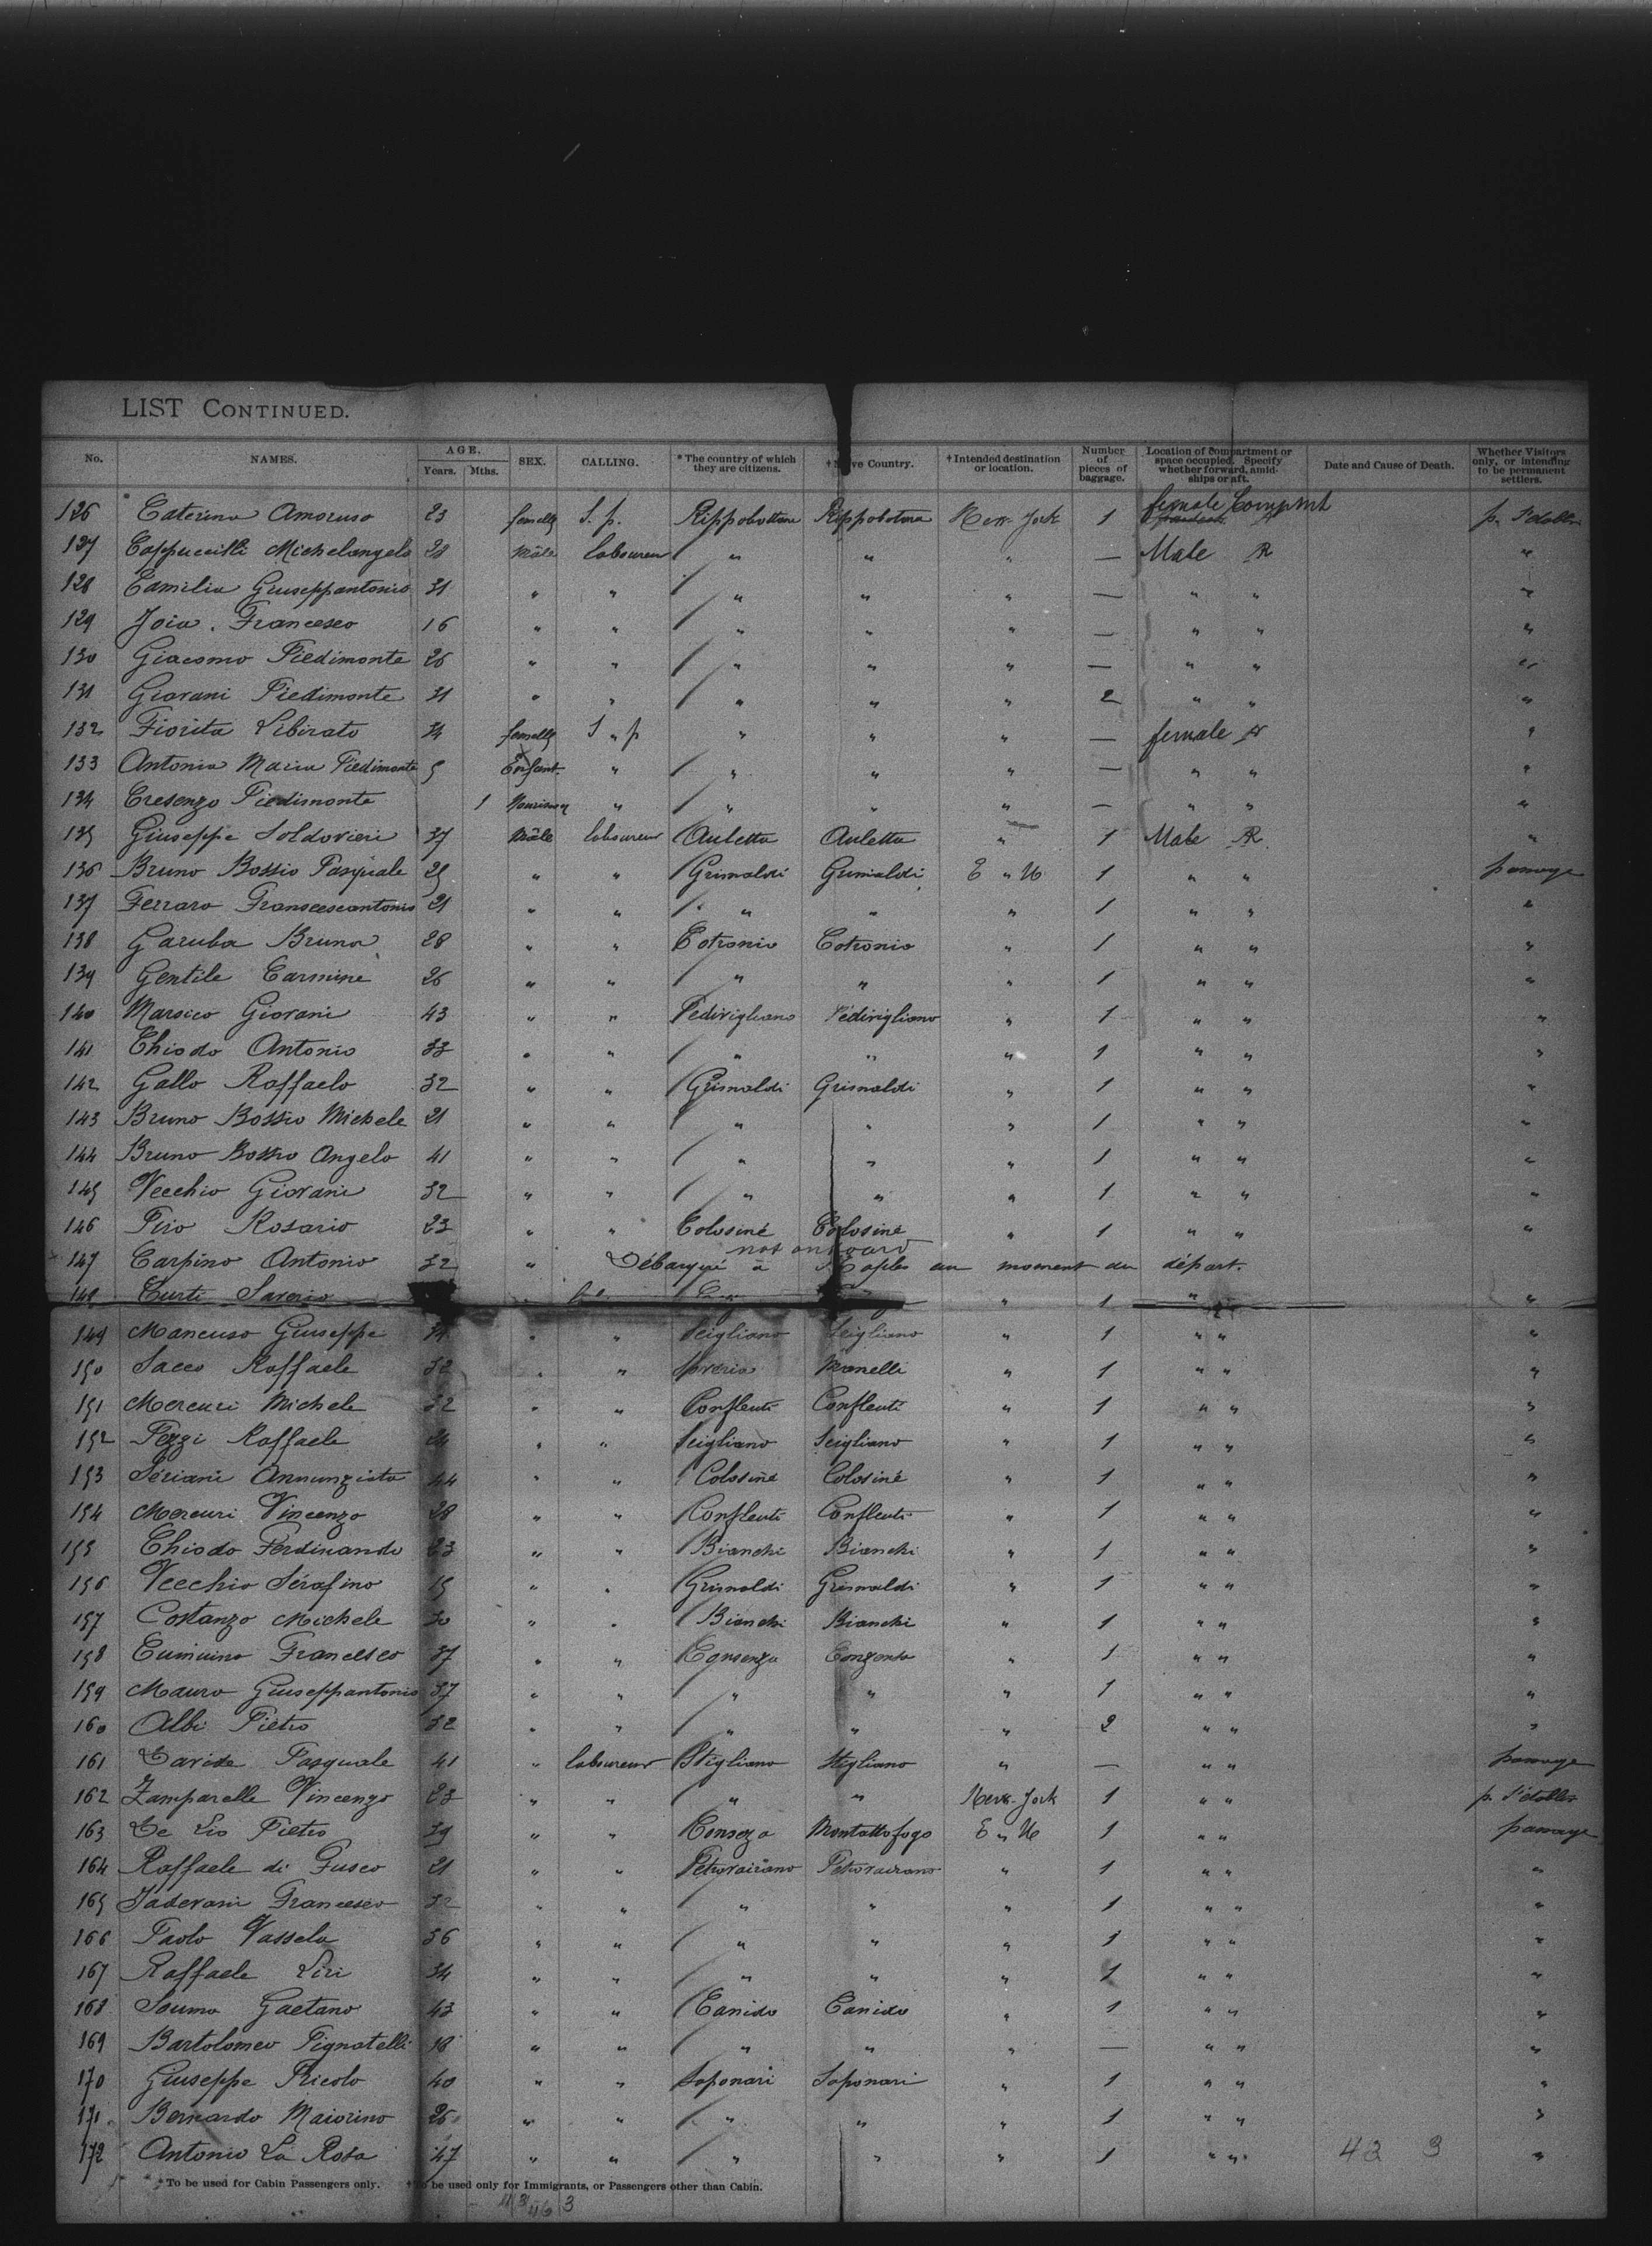 LIST CONTINUED.
No. NAMES. AGE. Years. Mths. SEX. CALLING. * The country of which they are citizens. † ve Country. † Intended destination or location. Number of pieces of baggage. Location of compartment or space occupied. Specify whether forward, amidships or aft. Date and Cause of Death. Whether Visitors only, or intending to be permanent settlers.
126 Caterina Amoruso 23 femelle S. p. Rippobottone Rippobotone New-York 1 female Compmt p. S'établir
127 Cappuccilli Michelangelo 28 Mâle laboureur " " " — Male R "
128 Camilia Giuseppantonio 31 " " " " " — " " "
129 Joia. Francesco 16 " " " " " — " " "
130 Giacomo Piedimonte 26 " " " " " — " " "
131 Giovani Piedimonte 31 " " " " " 2 " " "
132 Fiorita Libirato 34 femelle S " p " " " — female "
133 Antonia Maria Piedimonte 5 Enfant " " " " — " " "
134 Cresenzo Piedimonte 1 " " " " — " " "
135 Giuseppe Soldovieri 37 Mâle laboureur Auletta Auletta " 1 Male R. "
136 Bruno Bossio Pasquale 25 " " Grimaldi Grimaldi E " U 1 " " passage
137 Ferraro Franscescantonio 21 " " " " " 1 " " "
138 Garuba Bruno 28 " " Cotronio Cotronio " 1 " " "
139 Gentile Carmine 26 " " " " " 1 " " "
140 Marsico Giovani 43 " " Pedivigliano Pédivigliano " 1 " " "
141 Chiodo Antonio 33 " " " " " 1 " " "
142 Gallo Raffaelo 32 " " Grimaldi Grimaldi " 1 " " "
143 Bruno Bossio Michele 21 " " " " " 1 " " "
144 Bruno Bossio Angelo 41 " " " " " 1 " " "
145 Vecchio Giovani 32 " " " " " 1 " " "
146 Piro Rosario 23 " " Colosiné Colosiné " 1 " " "
not on board
147 Carpino Antonio 32 " Débarqué à Naples au moment du départ.
148 Curti Saverio " " 1 " "
149 Mancuso Giuseppe 31 " " Scigliano Scigliano " 1 " " "
150 Sacco Raffaele 32 " " Soveria Manelli " 1 " " "
151 Mercuri Michele 32 " " Conflenti Conflenti " 1 " " "
152 Pezzi Raffaele 24 " " Scigliano Scigliano " 1 " " "
153 Sériani Annunziata 44 " " Colosiné Colosiné " 1 " " "
154 Mercuri Vincenzo 28 " " Conflenti Conflenti " 1 " " "
155 Chiodo Ferdinando 23 " " Bianchi Bianchi " 1 " " "
156 Vecchio Sérafino 15 " " Grimaldi Grimaldi " 1 " " "
157 Costanzo Michele 30 " " Bianchi Bianchi " 1 " " "
158 Francesco 37 " " Consenza " 1 " " "
159 Mauro Giuseppantonio 37 " " " " " 1 " " "
160 Albi Pietro 32 " " " " " 2 " " "
161 Davide Pasquale 41 " laboureur Stigliano Stigliano " — " " passage
162 Zamparelle Vincenzo 23 " " " " New-York 1 " " p. S'établir
163 De Lio Pietro 39 " " Conseza Montaltofogo E " U 1 " " passage
164 Raffaele di Fusco 21 " " Petrovairano Petrovairano " 1 " " "
165 Jadevani Francesco 32 " " " " " 1 " " "
166 Paolo Vassela 36 " " " " " 1 " " "
167 Raffaele Liri 34 " " " " " 1 " " "
168 Souma Gaetano 43 " " Canido Canido " 1 " " "
169 Bartolomeo Pignatelli 18 " " " " " — " " "
170 Giuseppe Ricolo 40 " " Saponari Saponari " 1 " " "
171 Bernardo Maiorino 26 " " " " " 1 " " "
172 Antonio La Rosa 47 " " " " " 1 " " 42 3 "
* To be used for Cabin Passengers only. † To be used only for Immigrants, or Passengers other than Cabin.